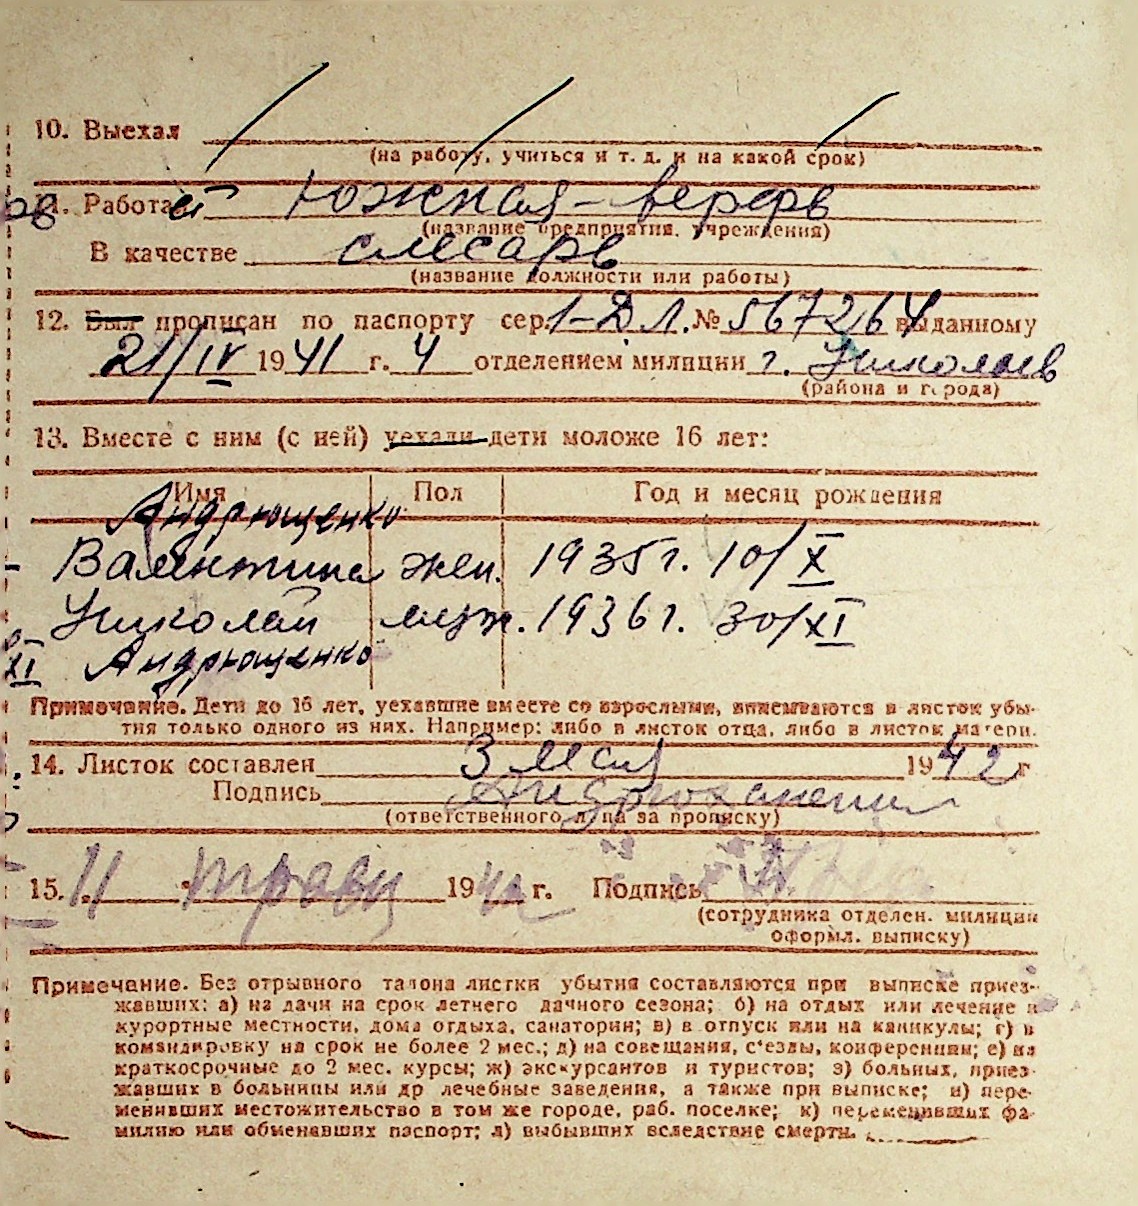 10. Выехал
(на работу, учиться и т. д. и на какой срок)
11. Работает Южная-верфь
(название предприятия, учреждения)
В качестве слесарь
(название должности или работы)
12. Был прописан по паспорту сер. 1-ДЛ. № 567264 выданному
21/IV 1941 г. 4 отделением милиции г. Николаев
(района и города)
13. Вместе с ним (с ней) уехали дети моложе 16 лет:
Имя Пол Год и месяц рождения
Андрющенко
Валентина жен. 1935 г. 10/X
Николай муж. 1936 г. 30/XI
XI Андрющенко
Примечание. Дети до 16 лет, уехавшие вместе со взрослыми, вписываются в листок убы-
тия только одного из них. Например: либо в листок отца, либо в листок матери.
14. Листок составлен 3 мая 1942 г
Подпись
(ответственного лица за прописку)
15. 11 травц 1942 г. Подпись
(сотрудника отделен. милиции
оформл. выписку)
Примечание. Без отрывного талона листки убытия составляются при выписке приез-
жавших: а) на дачи на срок летнего дачного сезона; б) на отдых или лечение в
курортные местности, дома отдыха, санатории; в) в отпуск или на каникулы; г) в
командировку на срок не более 2 мес.; д) на совещания, с'езды, конференции; е) на
краткосрочные до 2 мес. курсы; ж) экскурсантов и туристов; з) больных, приез-
жавших в больницы или др лечебные заведения, а также при выписке; и) пере-
менивших местожительство в том же городе, раб. поселке; к) переменивших фа-
милию или обменявших паспорт; л) выбывших вследствие смерти.